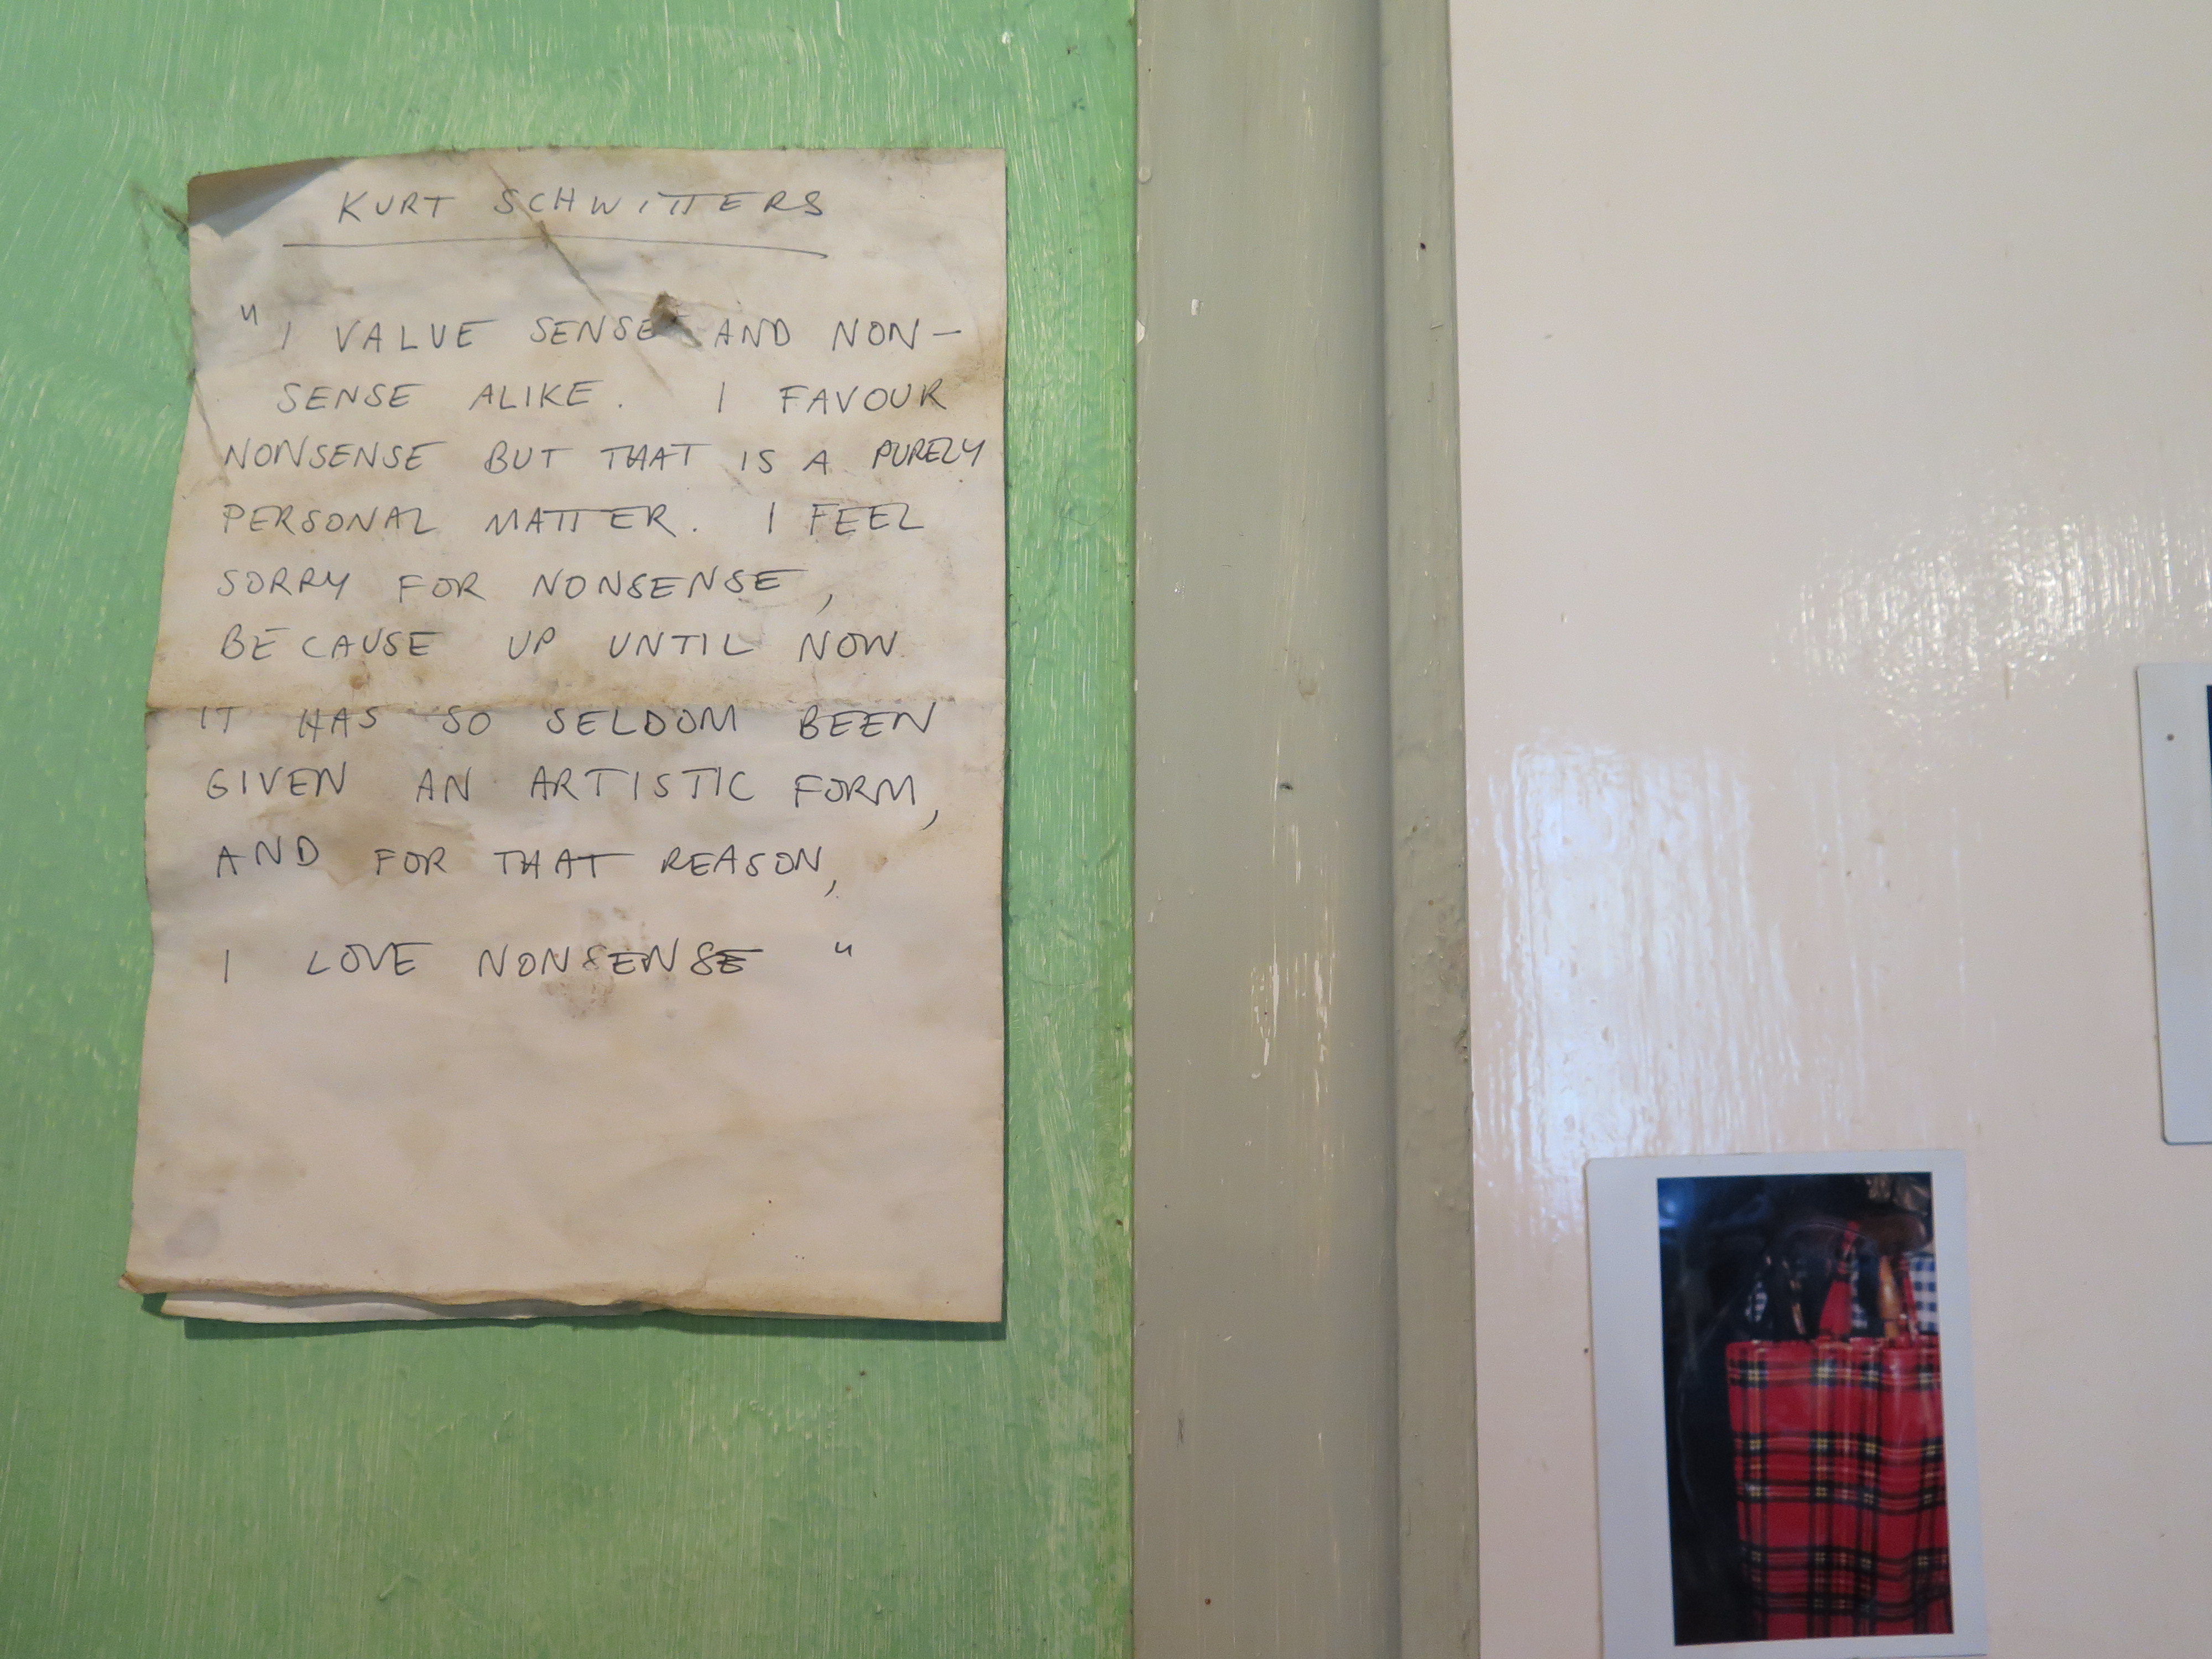 KURT SCHWITTERS
"I VALUE SENSE AND NON-
SENSE ALIKE. I FAVOUR
NONSENSE BUT THAT IS A PURELY
PERSONAL MATTER. I FEEL
SORRY FOR NONSENSE,
BECAUSE UP UNTIL NOW
IT HAS SO SELDOM BEEN
GIVEN AN ARTISTIC FORM,
AND FOR THAT REASON,
I LOVE NONSENSE"